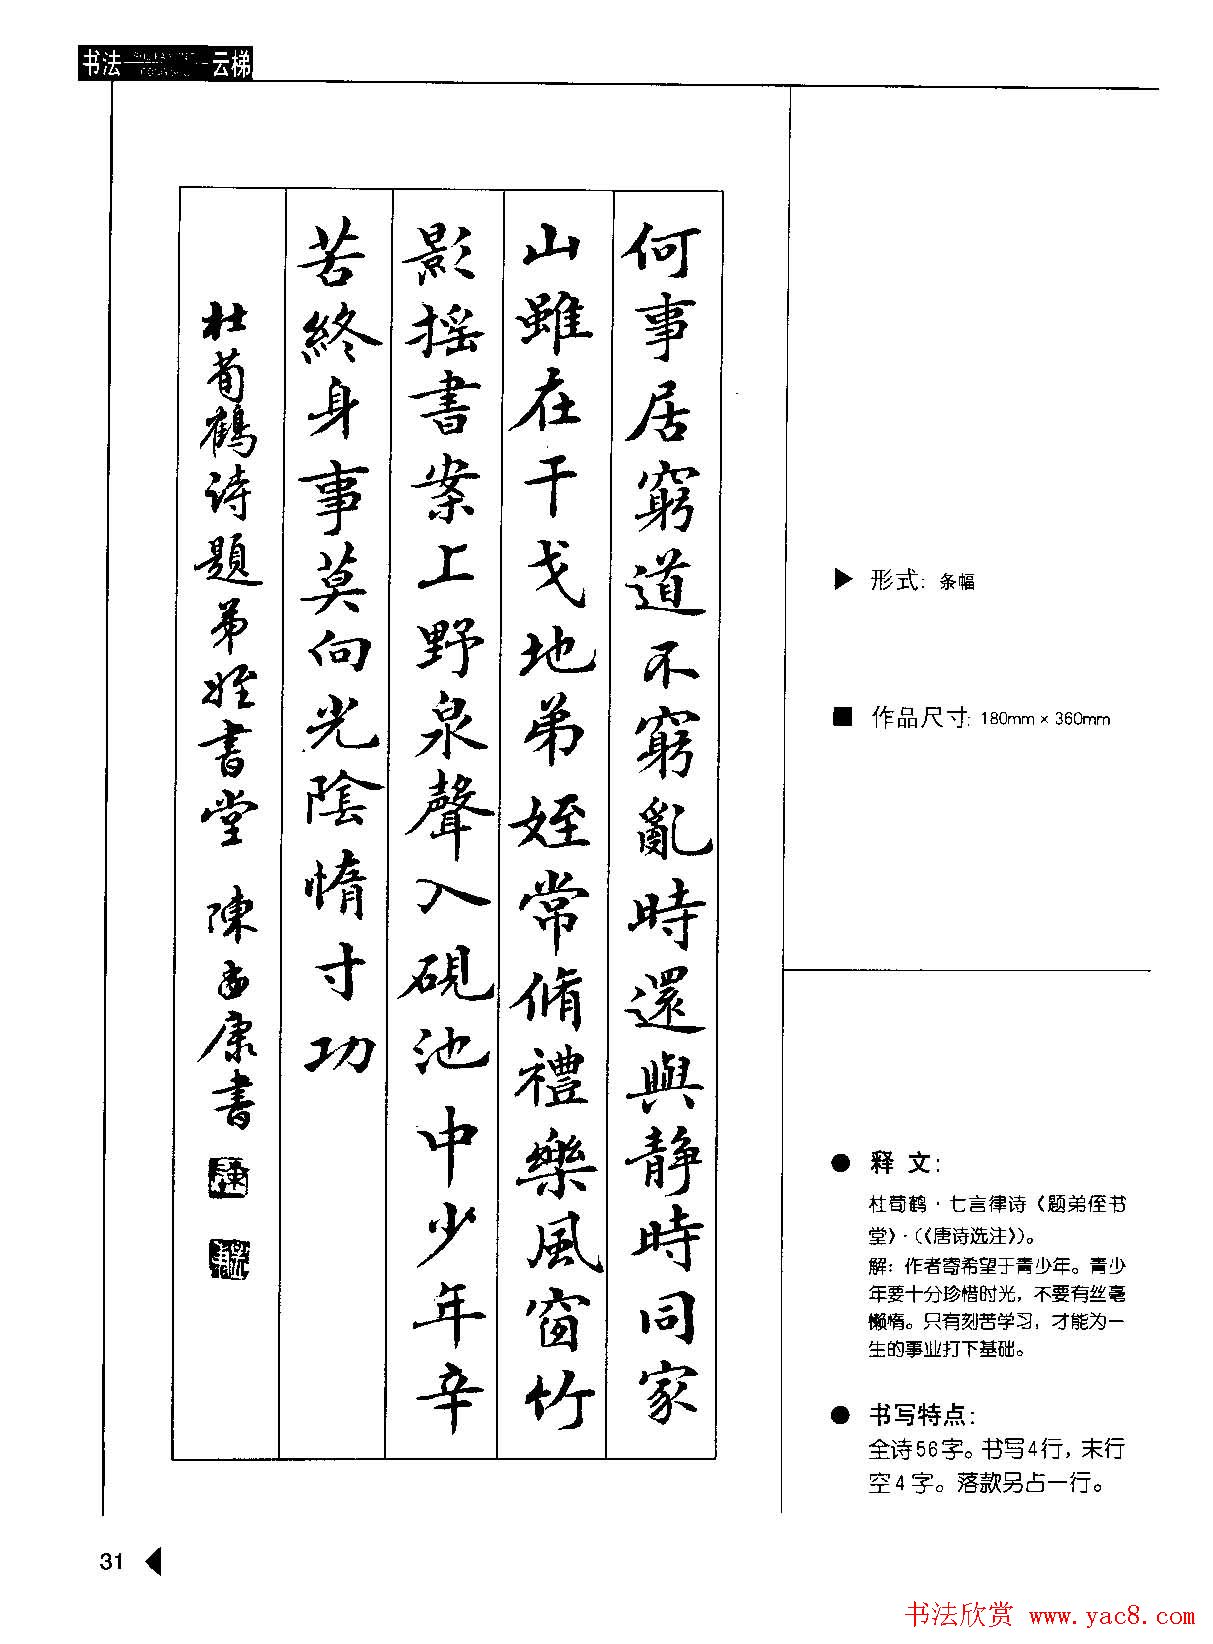 书法
云梯
何事居窮道不窮亂時還與靜時同家
山雖在干戈地弟姪常脩禮樂風窗竹
影摇書案上野泉聲入硯池中少年辛
苦終身事莫向光陰惰寸功
杜荀鶴诗題弟姪書堂 陳 康書
▶ 形式: 条幅
■ 作品尺寸: 180mm × 360mm
● 释 文:
杜荀鹤·七言律诗〈题弟侄书
堂〉·(《唐诗选注》)。
解: 作者寄希望于青少年。青少
年要十分珍惜时光, 不要有丝毫
懒惰。只有刻苦学习, 才能为一
生的事业打下基础。
● 书写特点:
全诗56字。书写4行, 末行
空4字。落款另占一行。
31
书法欣赏 www.yac8.com